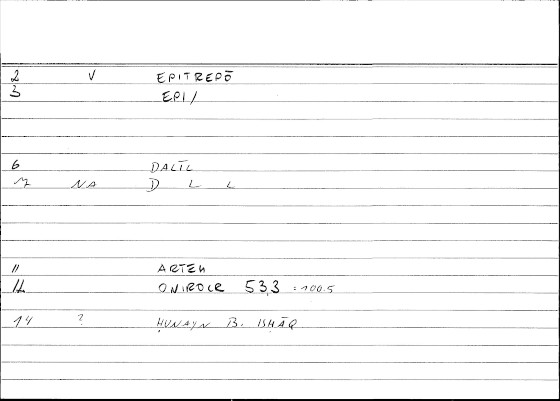 2 V EPITREPŌ
3 EPI/
6 DALĪL
7 NA D L L
11 ARTEM
12 ONIROCR 53,3 =100.5
14 ? ḤUNAYN B. ISḤĀQ